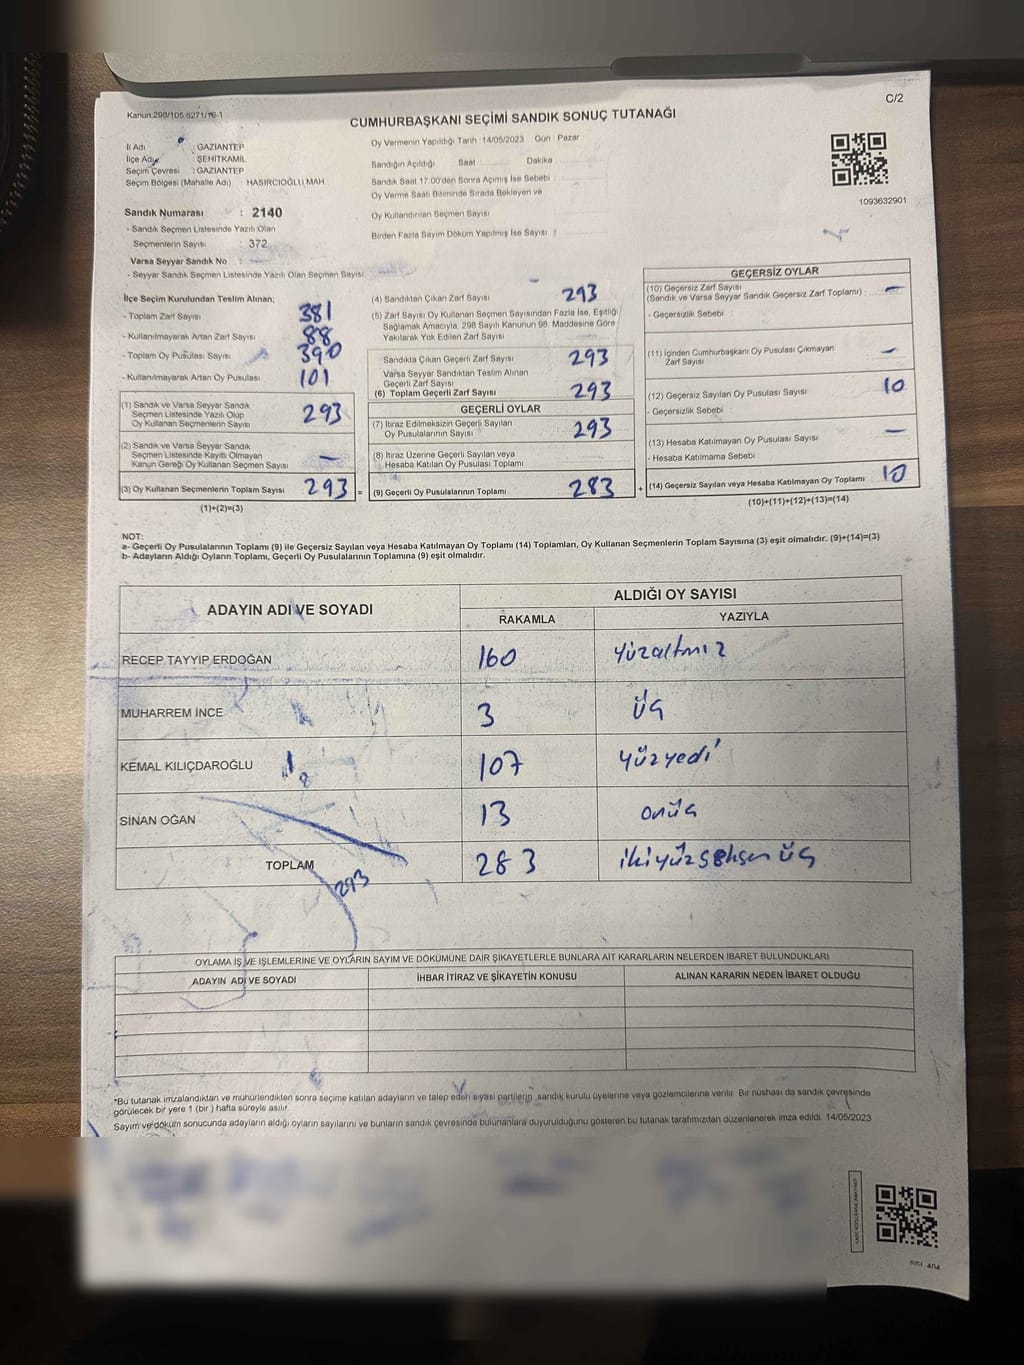 Kanun:298/105 6271/18-1
C/2
CUMHURBAŞKANI SEÇİMİ SANDIK SONUÇ TUTANAĞI
İl Adı : GAZİANTEP
İlçe Adı : ŞEHİTKAMİL
Seçim Çevresi : GAZİANTEP
Seçim Bölgesi (Mahalle Adı) HASIRCIOĞLU MAH
Oy Vermenin Yapıldığı Tarih :14/05/2023 Gün : Pazar
Sandığın Açıldığı Saat Dakika
Sandık Saat 17:00'den Sonra Açımış İse Sebebi
Oy Verme Saati Bitiminde Sırada Bekleyen ve
Oy Kullandırılan Seçmen Sayısı
Birden Fazla Sayım Döküm Yapılmış İse Sayısı :
1093632901
Sandık Numarası : 2140
- Sandık Seçmen Listesinde Yazılı Olan
Seçmenlerin Sayısı : 372
Varsa Seyyar Sandık No :
- Seyyar Sandık Seçmen Listesinde Yazılı Olan Seçmen Sayısı
İlçe Seçim Kurulundan Teslim Alınan;
- Toplam Zarf Sayısı 381
- Kullanılmayarak Artan Zarf Sayısı 88
- Toplam Oy Pusulası Sayısı 390
- Kullanılmayarak Artan Oy Pusulası 101
(1) Sandık ve Varsa Seyyar Sandık
Seçmen Listesinde Yazılı Olup
Oy Kullanan Seçmenlerin Sayısı 293
(2) Sandık ve Varsa Seyyar Sandık
Seçmen Listesinde Kayıtlı Olmayan
Kanun Gereği Oy Kullanan Seçmen Sayısı –
(3) Oy Kullanan Seçmenlerin Toplam Sayısı 293 =
(1)+(2)=(3)
(4) Sandıktan Çıkan Zarf Sayısı 293
(5) Zarf Sayısı Oy Kullanan Seçmen Sayısından Fazla İse, Eşitliği
Sağlamak Amacıyla, 298 Sayılı Kanunun 98. Maddesine Göre
Yakılarak Yok Edilen Zarf Sayısı
Sandıkta Çıkan Geçerli Zarf Sayısı 293
Varsa Seyyar Sandıktan Teslim Alınan
Geçerli Zarf Sayısı
(6) Toplam Geçerli Zarf Sayısı 293
GEÇERLİ OYLAR
(7) İtiraz Edilmeksizin Geçerli Sayılan
Oy Pusulalarının Sayısı 293
(8) İtiraz Üzerine Geçerli Sayılan veya
Hesaba Katılan Oy Pusulası Toplamı
(9) Geçerli Oy Pusulalarının Toplamı 283 +
GEÇERSİZ OYLAR
(10) Geçersiz Zarf Sayısı
(Sandık ve Varsa Seyyar Sandık Geçersiz Zarf Toplamı) : –
- Geçersizlik Sebebi :
(11) İçinden Cumhurbaşkanı Oy Pusulası Çıkmayan
Zarf Sayısı –
(12) Geçersiz Sayılan Oy Pusulası Sayısı 10
- Geçersizlik Sebebi :
(13) Hesaba Katılmayan Oy Pusulası Sayısı –
- Hesaba Katılmama Sebebi
(14) Geçersiz Sayılan veya Hesaba Katılmayan Oy Toplamı 10
(10)+(11)+(12)+(13)=(14)
NOT:
a- Geçerli Oy Pusulalarının Toplamı (9) ile Geçersiz Sayılan veya Hesaba Katılmayan Oy Toplamı (14) Toplamları, Oy Kullanan Seçmenlerin Toplam Sayısına (3) eşit olmalıdır. (9)+(14)=(3)
b- Adayların Aldığı Oyların Toplamı, Geçerli Oy Pusulalarının Toplamına (9) eşit olmalıdır.
ADAYIN ADI VE SOYADI
ALDIĞI OY SAYISI
RAKAMLA YAZIYLA
RECEP TAYYİP ERDOĞAN 160 yüzaltmız
MUHARREM İNCE 3 üç
KEMAL KILIÇDAROĞLU 107 yüzyedi
SİNAN OĞAN 13 onüç
TOPLAM 283 ikiyüzseksen üç
293
OYLAMA İŞ VE İŞLEMLERİNE VE OYLARIN SAYIM VE DÖKÜMÜNE DAİR ŞİKAYETLERLE BUNLARA AİT KARARLARIN NELERDEN İBARET BULUNDUKLARI
ADAYIN ADI VE SOYADI İHBAR İTİRAZ VE ŞİKAYETİN KONUSU ALINAN KARARIN NEDEN İBARET OLDUĞU
*Bu tutanak imzalandıktan ve mühürlendikten sonra seçime katılan adayların ve talep eden siyasi partilerin ,sandık kurulu üyelerine veya gözlemcilerine verilir. Bir nüshası da sandık çevresinde
görülecek bir yere 1 (bir ) hafta süreyle asılır.
Sayım ve döküm sonucunda adayların aldığı oyların sayılarını ve bunların sandık çevresinde bulunanlara duyurulduğunu gösteren bu tutanak tarafımızdan düzenlenerek imza edildi. 14/05/2023